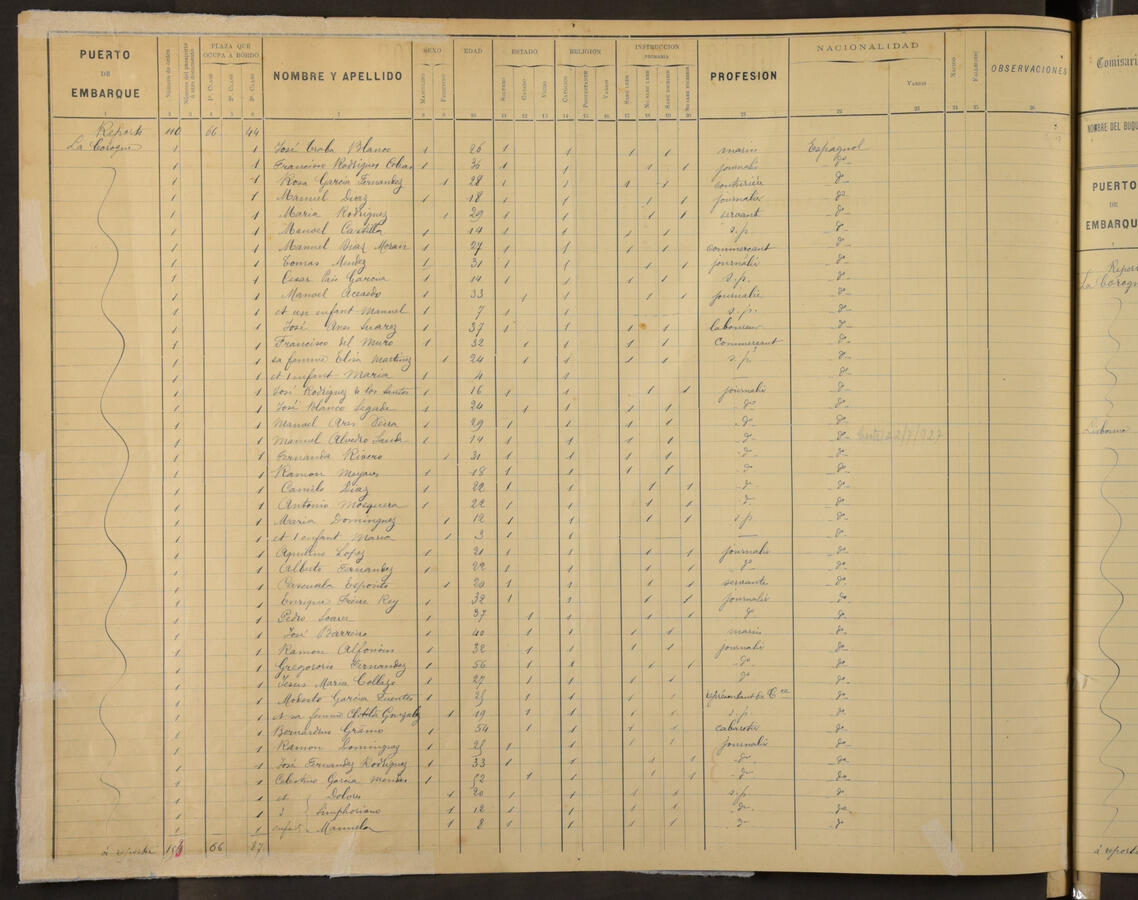 PUERTO DE EMBARQUE
Número de orden
Número del pasaporte ú otro documento
PLAZA QUE OCUPA A BORDO
1ª CLASE 2ª CLASE 3ª CLASE
NOMBRE Y APELLIDO
SEXO
MASCULINO FEMENINO
EDAD
ESTADO
SOLTERO CASADO VIUDO
RELIGION
CATÓLICO PROTESTANTE VARIOS
INSTRUCCION PRIMARIA
SABE LEER NO SABE LEER SABE ESCRIBIR NO SABE ESCRIBIR
PROFESION
NACIONALIDAD
VARIOS
NACIDO
FALLECIDO
OBSERVACIONES
Report 110 66 44
La Corogne 1 1 José Broba Blanco 1 26 1 1 1 1 marin Espagnol
1 1 Francisco Rodriguez 1 36 1 1 1 1 journalie do
1 1 Rosa Garcia Fernandez 1 28 1 1 1 1 couturière do
1 1 Manuel Diaz 1 18 1 1 1 1 journalie do
1 1 Maria Rodriguez 1 29 1 1 1 1 servant do
1 1 Manoel Castilla 1 14 1 1 1 1 s.p. do
1 1 Manuel Diaz Moran 1 27 1 1 1 1 commerçant do
1 1 Tomas Mendez 1 31 1 1 1 1 journalie do
1 1 Cesar Pais Garcia 1 14 1 1 1 1 s.p. do
1 1 Manoel Acevedo 1 33 1 1 1 1 journalie do
1 1 et un enfant Manuel 1 7 1 1 s.p. do
1 1 José Anes Suarez 1 37 1 1 1 1 laboureur do
1 1 Francisco del Muro 1 32 1 1 1 1 commerçant do
1 1 sa femme Elvira Martinez 1 24 1 1 1 1 s.p. do
1 1 et 1 enfant Maria 1 4 1 — do
1 1 José Rodriguez de los Santos 1 16 1 1 1 1 journalie do
1 1 José Blanco Segade 1 24 1 1 1 1 do do
1 1 Manuel Ares 1 29 1 1 1 1 do do
1 1 Manuel Alvedro 1 14 1 1 1 1 do do
1 1 Fernanda Rivero 1 31 1 1 1 1 do do
1 1 Ramon 1 18 1 1 1 1 do do
1 1 Camilo Diaz 1 22 1 1 1 1 do do
1 1 Antonio Mosquera 1 22 1 1 1 1 do do
1 1 Maria Dominguez 1 12 1 1 1 1 s.p. do
1 1 et 1 enfant Maria 1 3 1 1 — do
1 1 Agustino Lopez 1 21 1 1 1 1 journalie do
1 1 Alberto Fernandez 1 22 1 1 1 1 do do
1 1 Pascuala Esposito 1 20 1 1 1 1 servante do
1 1 Enrique Freire Rey 1 32 1 1 1 1 journalie do
1 1 Pedro Soares 1 37 1 1 1 1 do do
1 1 José Barreiro 1 40 1 1 1 1 marin do
1 1 Ramon Alfonsin 1 32 1 1 1 1 journalie do
1 1 Gregororio Fernandez 1 56 1 1 1 1 do do
1 1 Jesus Maria Collazo 1 27 1 1 1 1 do do
1 1 Moberto Garcia Fuentes 1 25 1 1 1 1 représentant de Cce do
1 1 et sa femme Gonzalez 1 19 1 1 1 1 s.p. do
1 1 Bernardino Gramo 1 54 1 1 1 1 cabaretie do
1 1 Ramon Dominguez 1 25 1 1 1 1 journalie do
1 1 José Fernandez Rodriguez 1 33 1 1 1 1 do do
1 1 Celestino Garcia 1 52 1 1 1 1 do do
1 1 et Dolores 1 20 1 1 1 1 s.p. do
1 1 3 Simphoriano 1 12 1 1 1 1 do do
1 1 enfts Manuela 1 8 1 1 1 1 do do
à reporter 153 66 87
Comisari
NOMBRE DEL BUQU
PUERTO DE EMBARQUE
Report
La Corogn
Lisbonne
à reporte